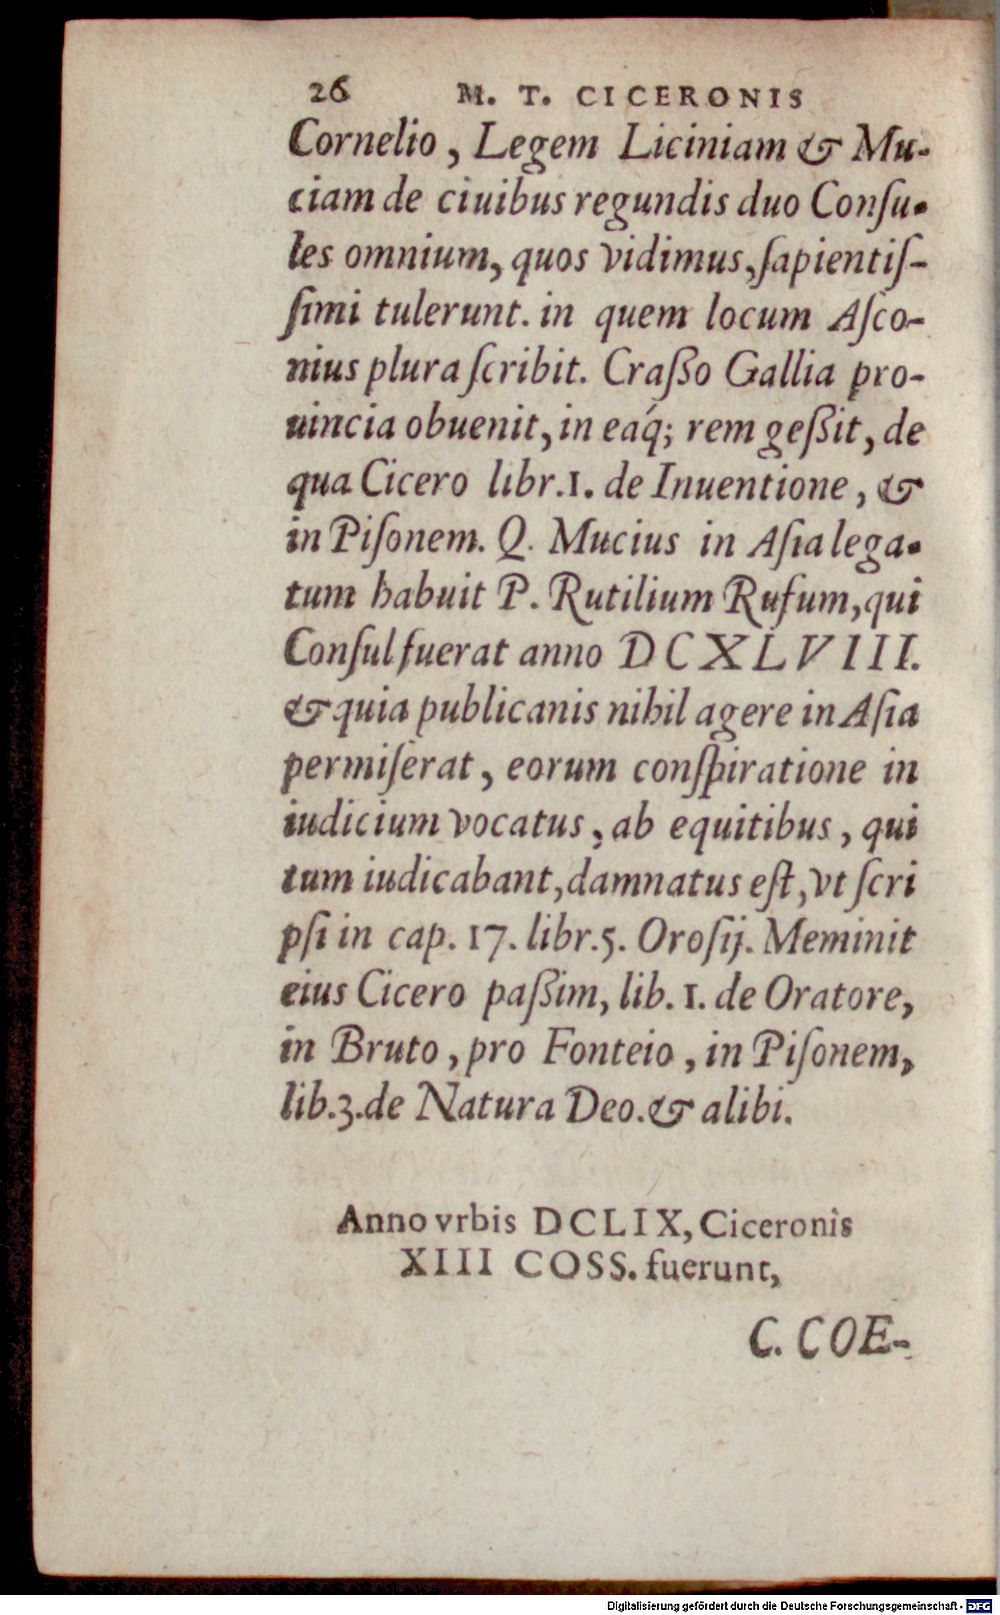 26 M. T. CICERONIS
Cornelio, Legem Liciniam & Mu-
ciam de ciuibus regundis duo Conſu-
les omnium, quos vidimus, ſapientiſ-
ſimi tulerunt. in quem locum Aſco-
nius plura ſcribit. Craßo Gallia pro-
uincia obuenit, in eáq; rem geßit, de
qua Cicero libr. 1. de Inuentione, &
in Piſonem. Q. Mucius in Aſia lega-
tum habuit P. Rutilium Rufum, qui
Conſul fuerat anno DCXLVIII.
& quia publicanis nihil agere in Aſia
permiſerat, eorum conſpiratione in
iudicium vocatus, ab equitibus, qui
tum iudicabant, damnatus eſt, vt ſcri
pſi in cap. 17. libr. 5. Oroſij. Meminit
eius Cicero paßim, lib. 1. de Oratore,
in Bruto, pro Fonteio, in Piſonem,
lib. 3. de Natura Deo. & alibi.
Anno vrbis DCLIX, Ciceronis
XIII COSS. fuerunt,
C. COE-
Digitalisierung gefördert durch die Deutsche Forschungsgemeinschaft - DFG